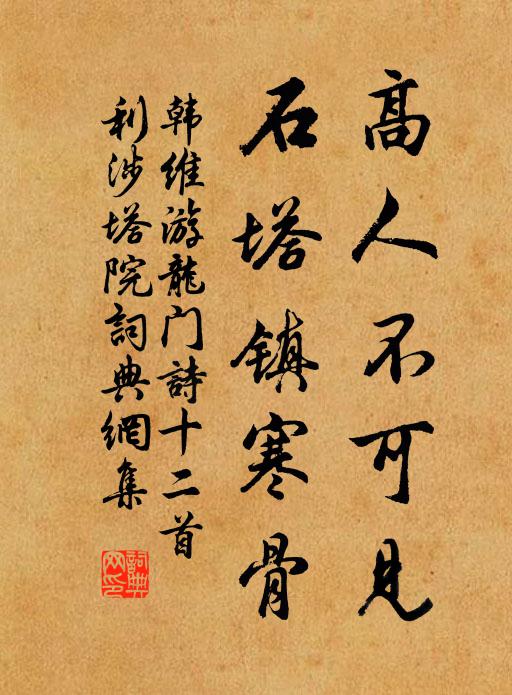 高人不可見
石塔镇寒骨
韩维游龍门詩十二首
利涉塔院詞典網集
詞典網印